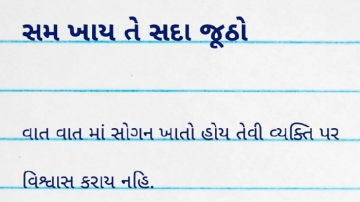 સમ ખાય તે સદા જૂઠો
વાત વાત માં સોગન ખાતો હોય તેવી વ્યક્તિ પર
વિશ્વાસ કરાય નહિ.